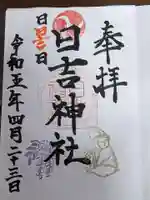 奉拝
日吉神社
令和五年四月二十三日